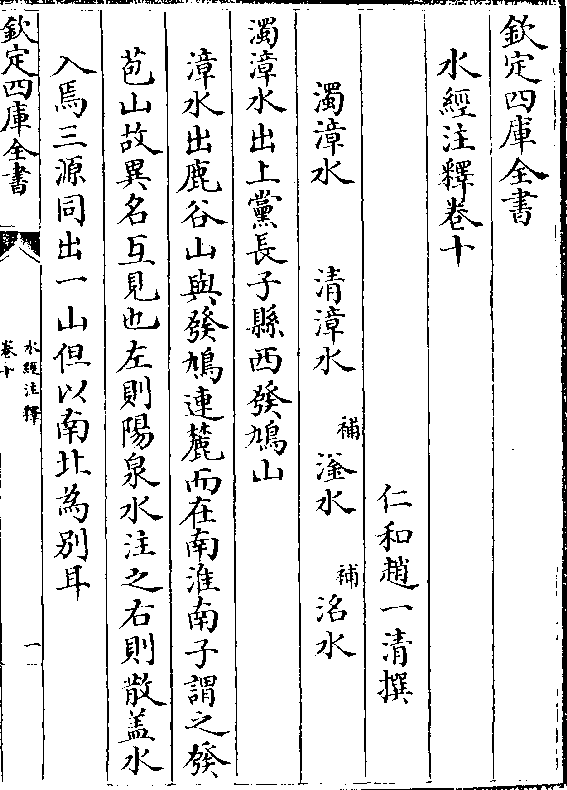 欽定四庫全書
水經注釋卷十
仁和趙一清撰
濁漳水 清漳水 補滏水 補洺水
濁漳水出上黨長子縣西發鳩山
漳水出鹿谷山與發鳩連麓而在南淮南子謂之發
苞山故異名互見也左則陽泉水注之右則散盖水
入焉三源同出一山但以南北為别耳
欽定四庫全書
水經注釋
卷十
一